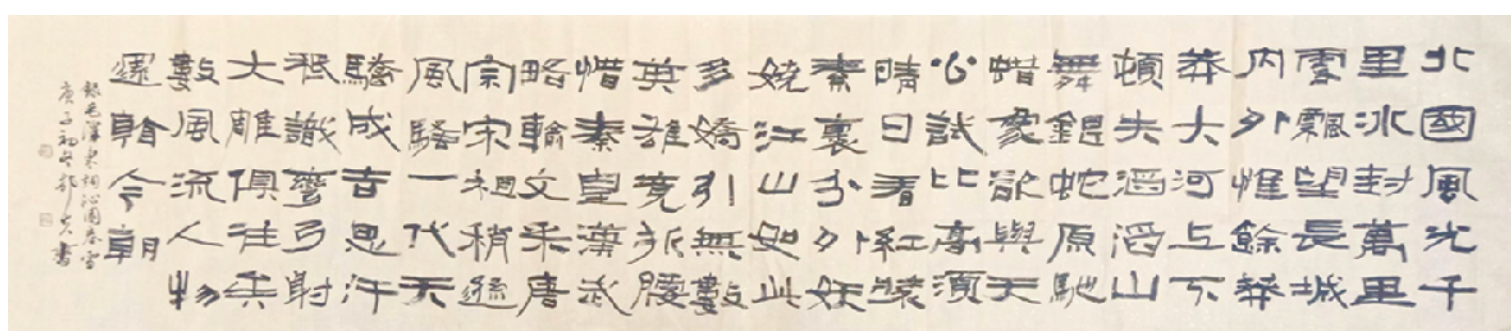 北國風光千
里冰封萬里
雪飄望長城
内外惟餘莽
莽大河上下
頓失滔滔山
舞銀蛇原馳
蜡象欲與天
公試比高須
晴日看紅裝
素裹分外妖
嬈江山如此
多嬌引無數
英雄競折腰
惜秦皇漢武
略輸文采唐
宗宋祖稍遜
風騷一代天
驕成吉思汗
祇識彎弓射
大雕俱往矣
數風流人物
還看今朝
録毛澤東詞沁園春雪
庚子初冬書